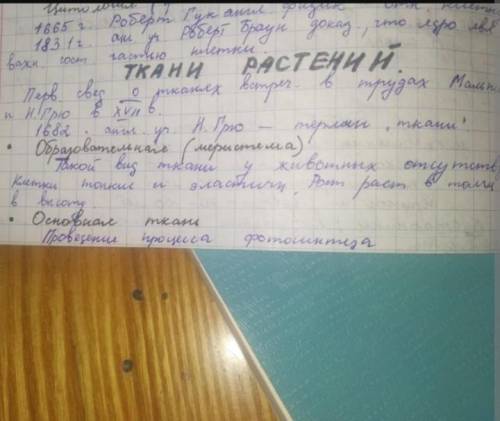 Цитология
1665 г. Роберт Гук англ. физик отк. клетк
1831 г. анг. уч. Роберт Браун доказ, что ядро явл
важн. сост. частью клетки.
ТКАНИ РАСТЕНИЙ.
Перв. свед. о тканях встреч. в трудах Мальп
и Н. Грю в XVII в.
1682. англ. уч. Н. Грю — термин „ткани"
• Образовательная (меристема)
Такой вид ткани у животных отсутств
Клетки тонкие и эластичн. Рост раст в толщ
в высоту
• Основная ткань
Проведение процесса фотосинтеза